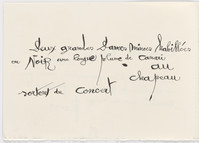 Deux grandes dames minces habillées
en Noir une longue plume de canari
au
chapeau
sortent du concert